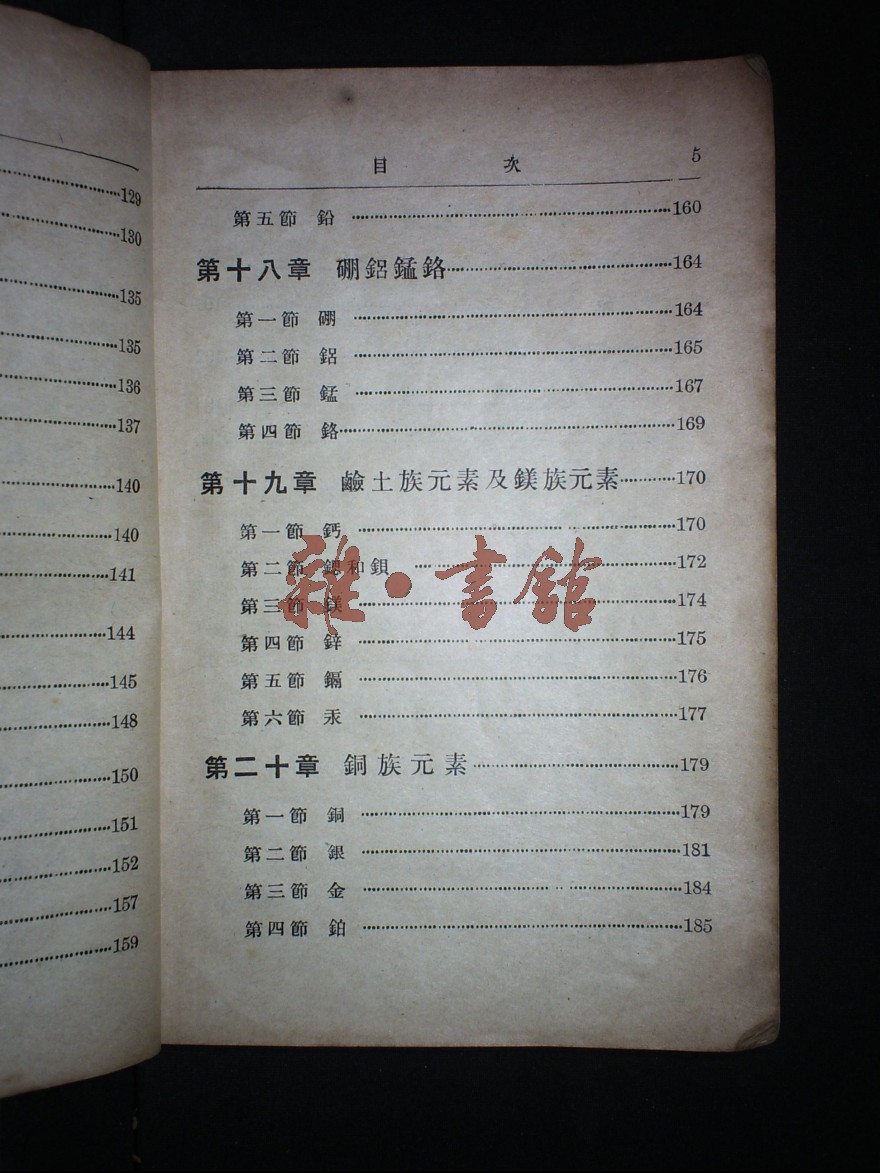 129
130
135
135
136
137
140
140
141
144
145
148
150
151
152
157
159
目 次 5
第五節 鉛 160
第十八章 硼鋁錳鉻 164
第一節 硼 164
第二節 鋁 165
第三節 錳 167
第四節 鉻 169
第十九章 鹼土族元素及鎂族元素 170
第一節 鈣 170
第二節 鍶和鋇 172
第三節 鎂 174
第四節 鋅 175
第五節 鎘 176
第六節 汞 177
第二十章 銅族元素 179
第一節 銅 179
第二節 銀 181
第三節 金 184
第四節 鉑 185
雜·書館